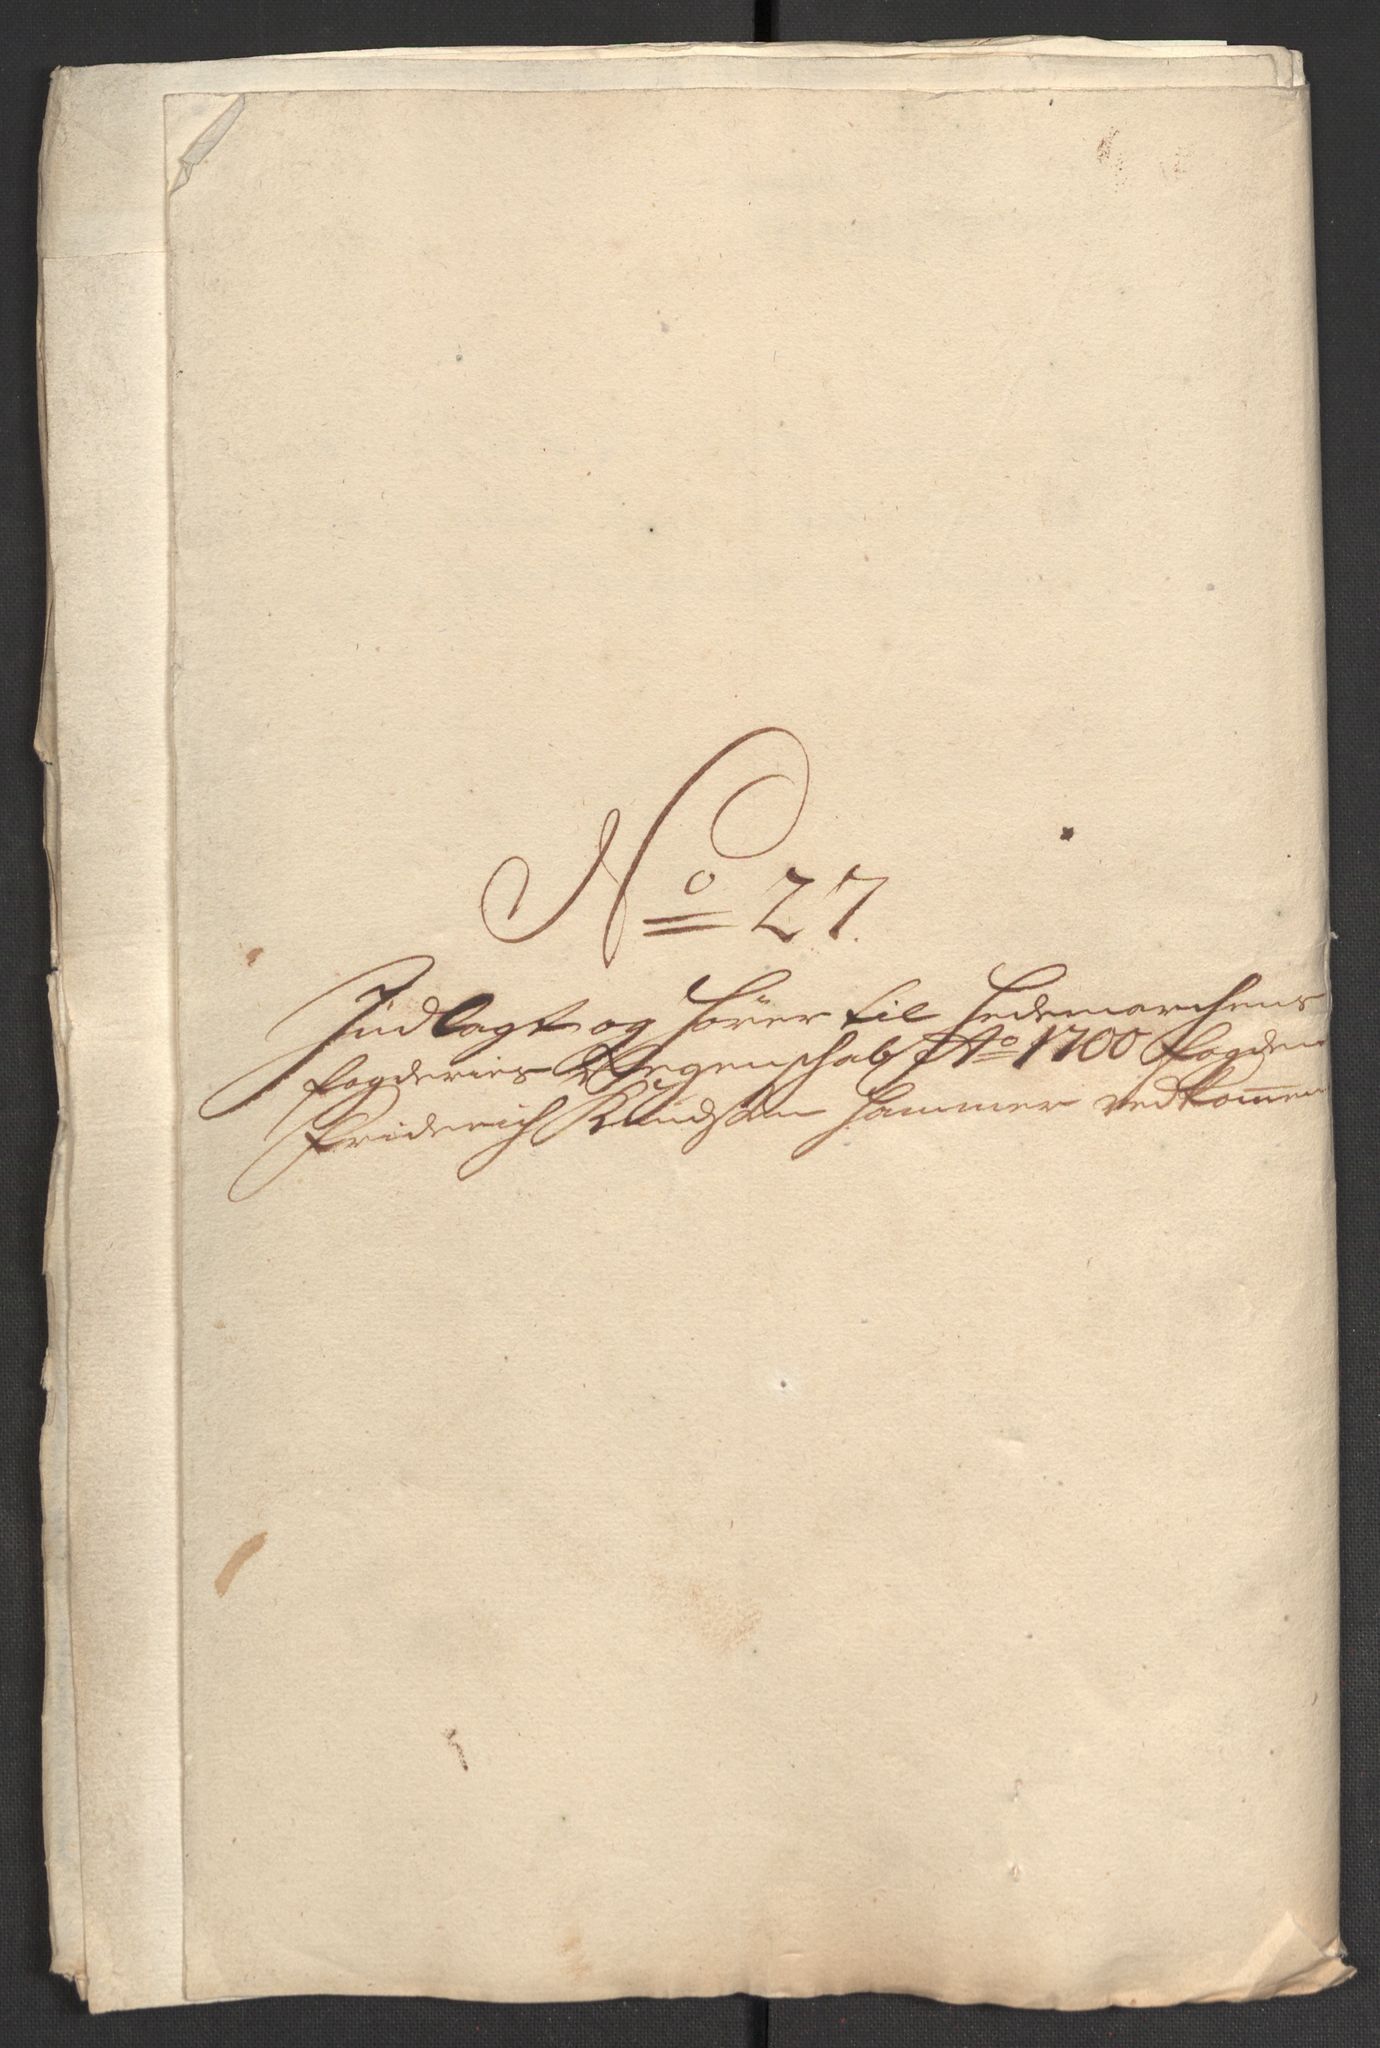 No 27.
Indlagt og hörer til Hedemarchens
fogderies Regenschab Ao 1700 fogden
Friderich Knudsøn Hammer vedkom̅en